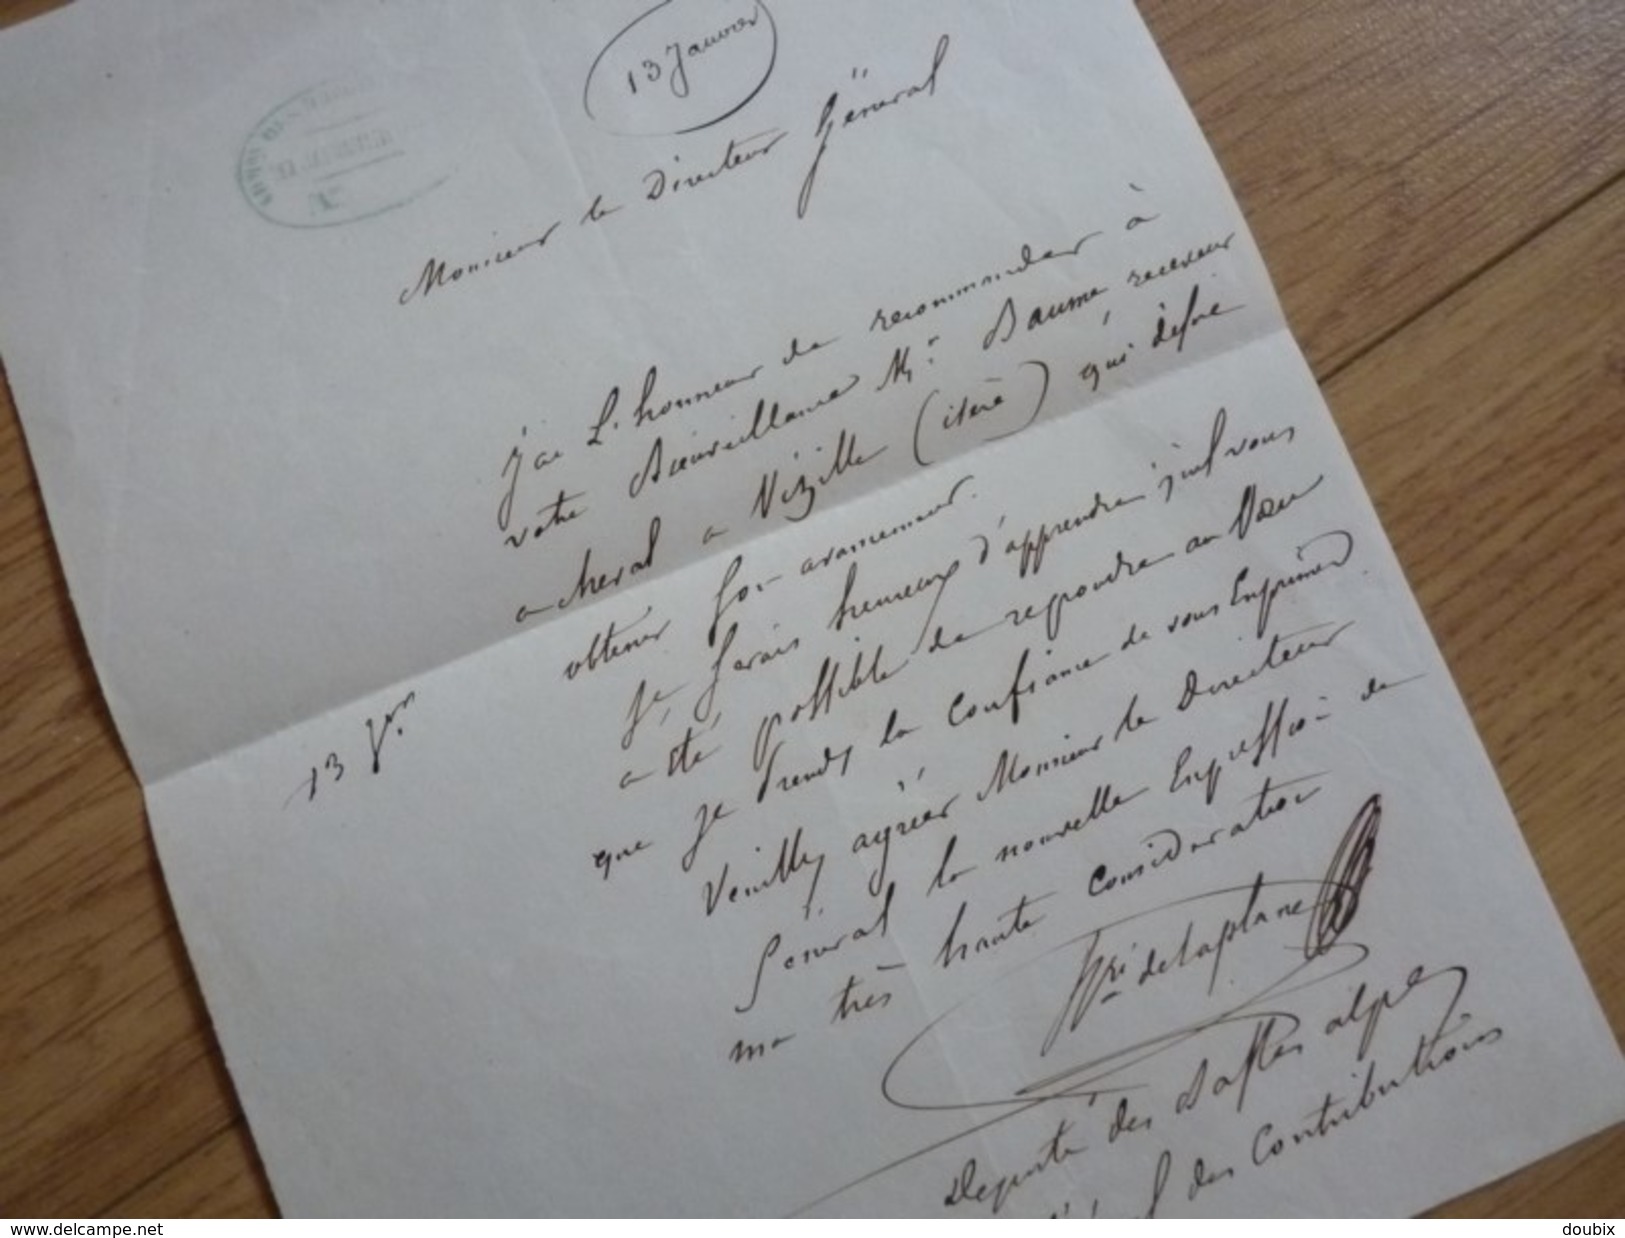 13 Janvier
Monsieur le Directeur Général
J'ai l'honneur de recommander à
votre Bienveillance Mr Baumé, receveur
a cheval a Vizille (isère) qui désire
obtenir son avancement.
Je serais heureux d'apprendre qu'il vous
a été possible de repondre au Vœu
que je viens la Confiance de vous Exprimer
Veuillez agréer Monsieur le Directeur
Général la nouvelle Expression de
ma très haute Consideration
de Laplane
13 Jer
Deputé des Basses alpes
des Contributions
www.delcampe.net
doubix